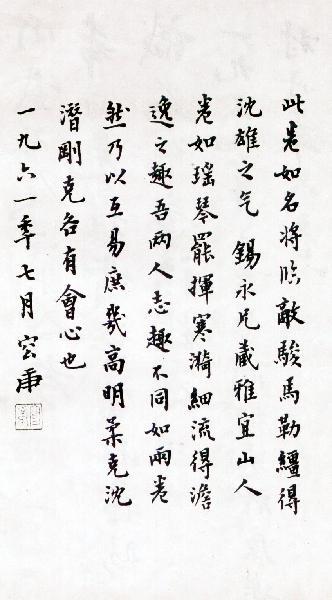 此卷如名将临敵駿馬勒繮得
沈雄之气錫永兄藏雅宜山人
卷如瑶琴罷揮寒漪細流得澹
逸之趣吾兩人志趣不同如兩卷
然乃以互易庶幾高明柔克沈
潛剛克各有會心也
一九六一年七月容庚